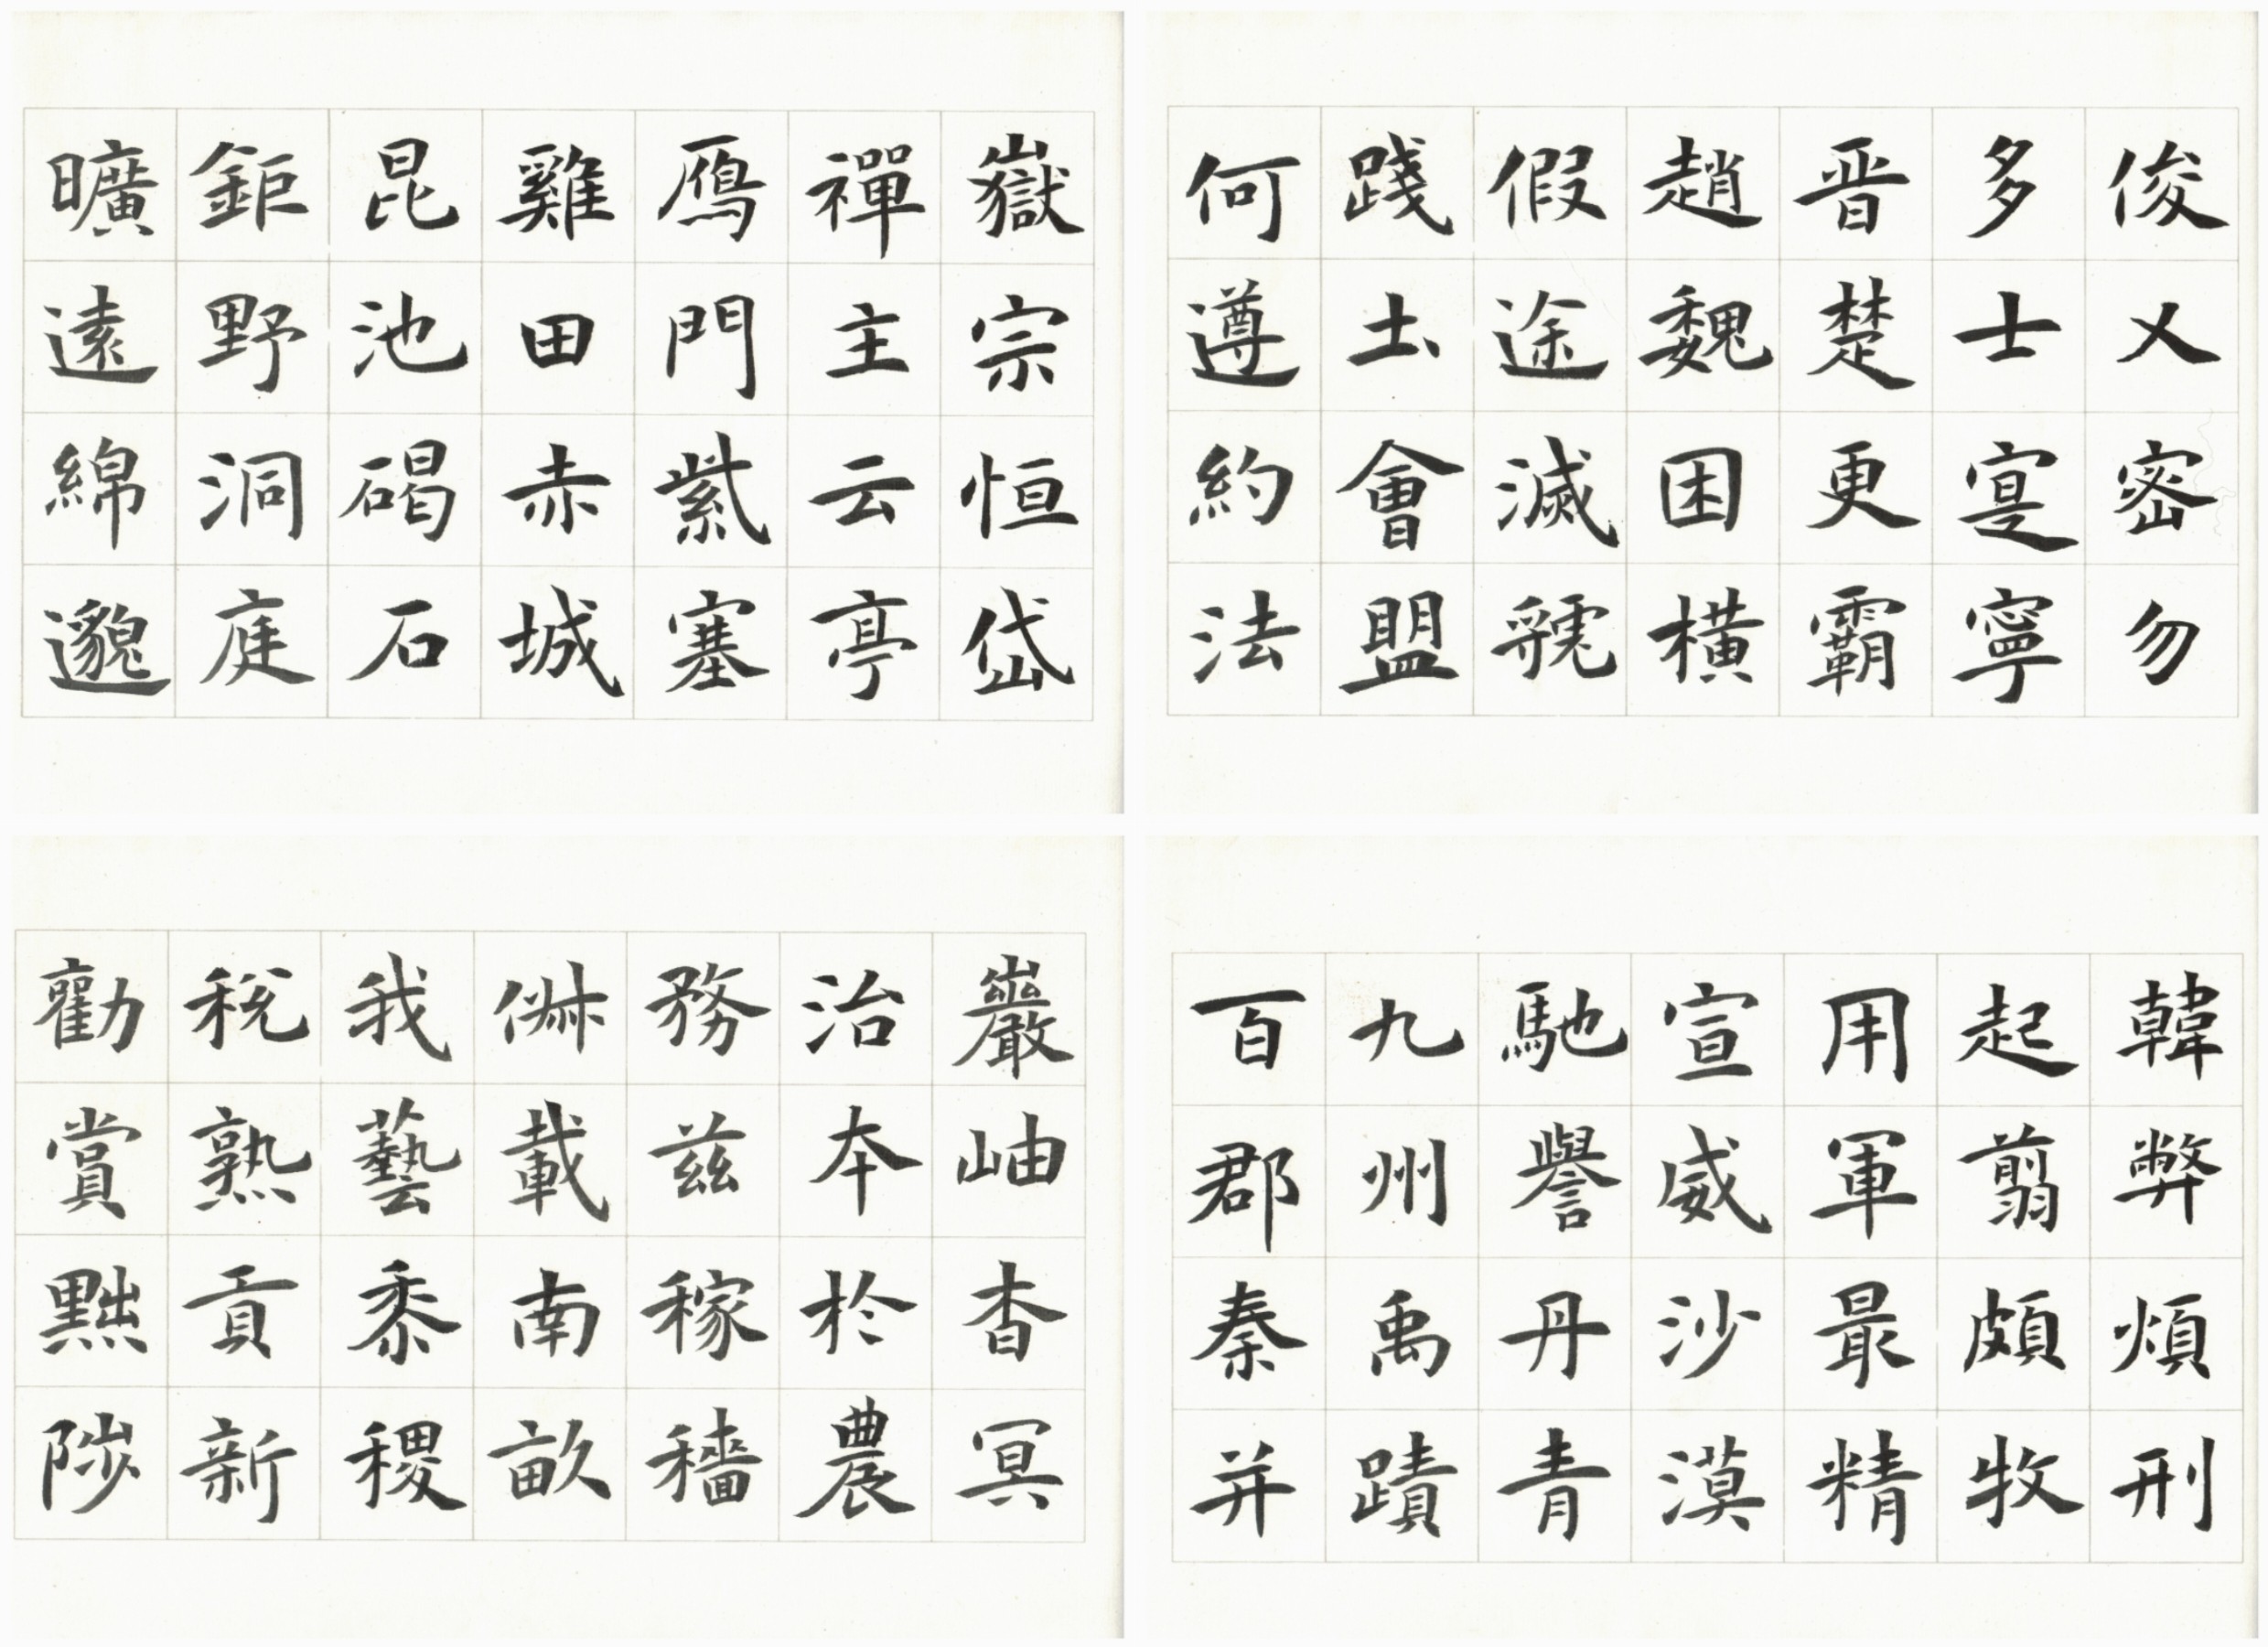 俊乂密勿
多士寔寧
晋楚更霸
趙魏困橫
假途滅虢
踐土會盟
何遵約法
韓弊煩刑
起翦頗牧
用軍最精
宣威沙漠
馳譽丹青
九州禹蹟
百郡秦并
嶽宗恒岱
禪主云亭
鴈門紫塞
雞田赤城
昆池碣石
鉅野洞庭
曠遠綿邈
巖岫杳冥
治本於農
務茲稼穡
俶載南畝
我藝黍稷
稅熟貢新
勸賞黜陟